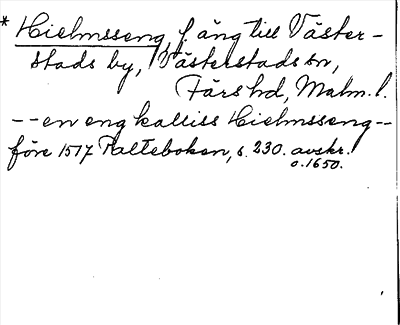 * Hielmsseng f. äng till Väster-
stads by, Västerstads sn,
Färs hd, Malm. l.
-- en eng kalliss Hielmsseng --
före 1517 Palteboken, s. 230. avskr.
o. 1650.